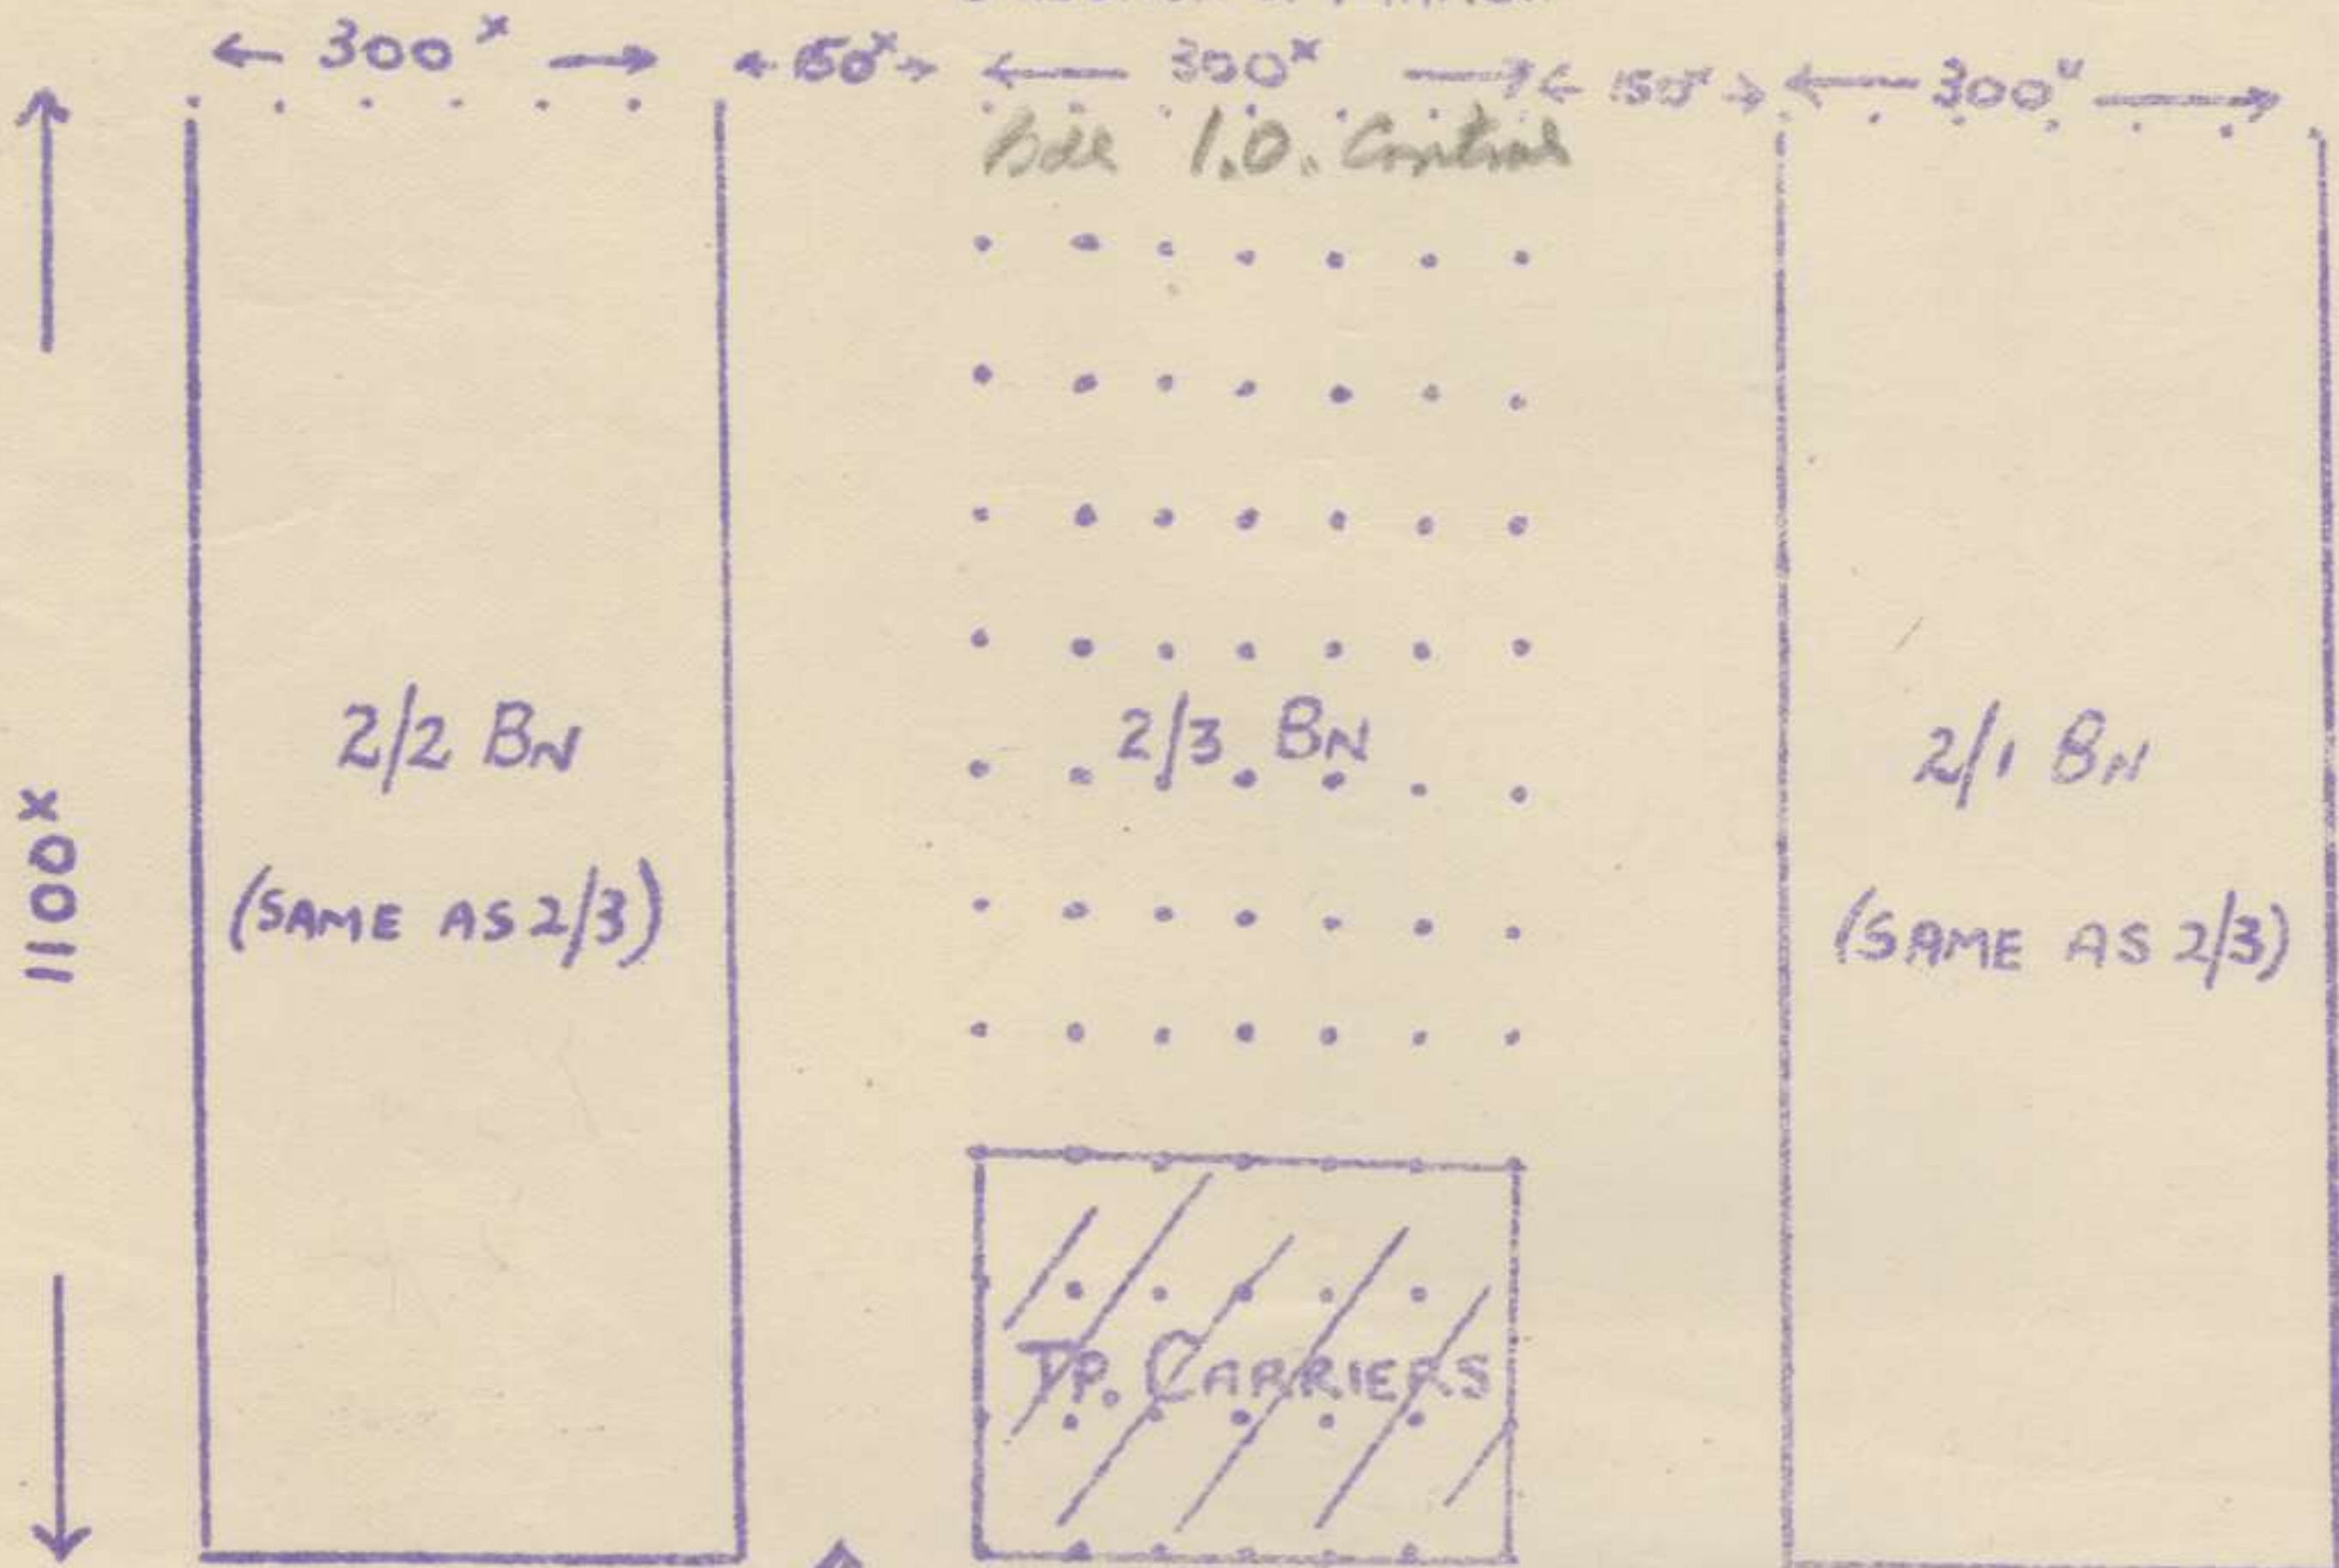 300ˣ 150ˣ 300ˣ 150ˣ 300ˣ
I.O. Control
1100ˣ
2/2 BN
(SAME AS 2/3)
2/3 BN
2/1 BN
(SAME AS 2/3)
TP. CARRIERS